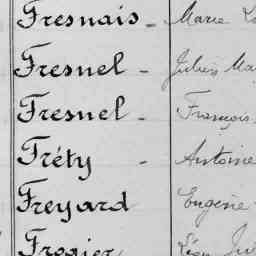 Fresnais - Marie
Fresnel - Jules Ma
Fresnel - François
Fréty - Antoine
Freyard Eugène
Frogier Léon Jul